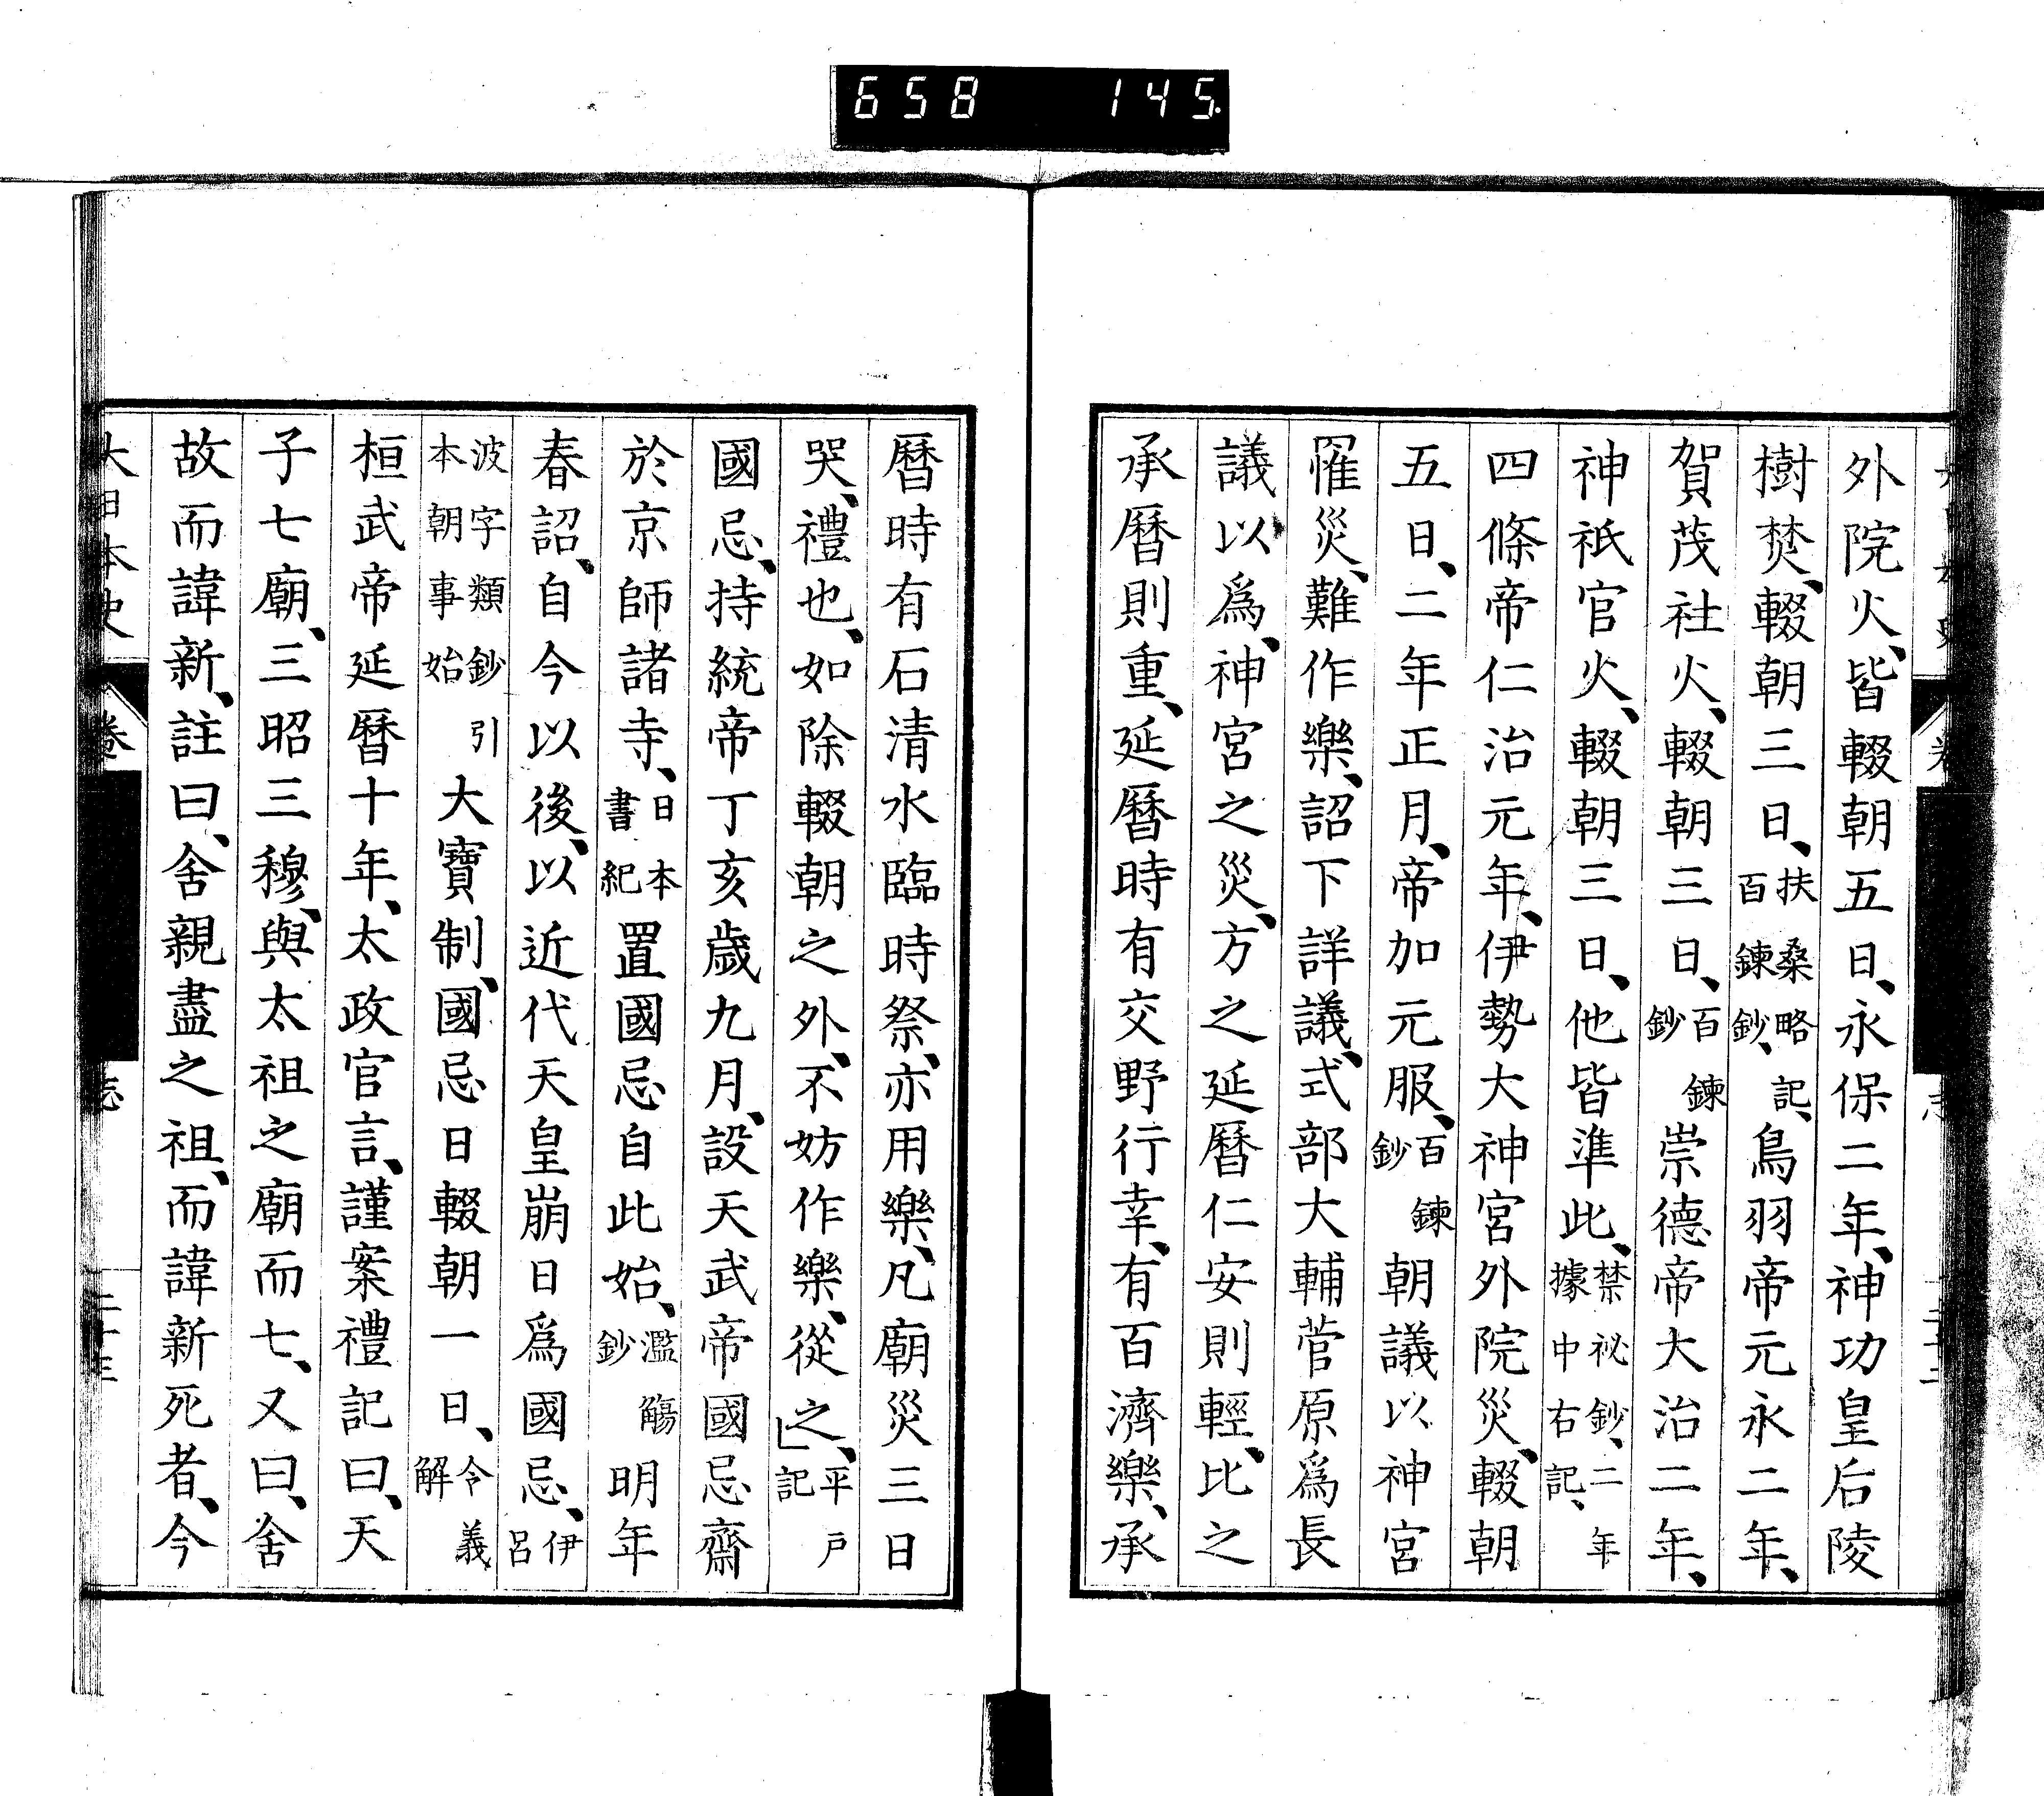 658 145.
外院火、皆輟朝五日、永保二年、神功皇后陵
樹焚、輟朝三日、扶桑略記、百鍊鈔、鳥羽帝元永二年、
賀茂社火、輟朝三日、百鍊鈔崇德帝大治二年、
神祇官火、輟朝三日、他皆準此、禁祕鈔、二年據中右記、
四條帝仁治元年、伊勢大神宮外院災、輟朝
五日、二年正月、帝加元服、百鍊鈔朝議以神宮
罹災、難作樂、詔下詳議、式部大輔菅原爲長
議以爲、神宮之災、方之延曆仁安則輕、比之
承曆則重、延曆時有交野行幸、有百濟樂、承
曆時有石清水臨時祭、亦用樂、凡廟災三日
哭、禮也、如除輟朝之外、不妨作樂、從之、」平戶記
國忌、持統帝丁亥歲九月、設天武帝國忌齋
於京師諸寺、日本書紀置國忌自此始、濫觴鈔明年
春詔、自今以後、以近代天皇崩日爲國忌、伊呂
波字類鈔引本朝事始大寶制、國忌日輟朝一日、令義解
桓武帝延曆十年、太政官言、謹案禮記曰、天
子七廟、三昭三穆、與太祖之廟而七、又曰、舍
故而諱新、註曰、舍親盡之祖、而諱新死者、今
大日本史 卷 志